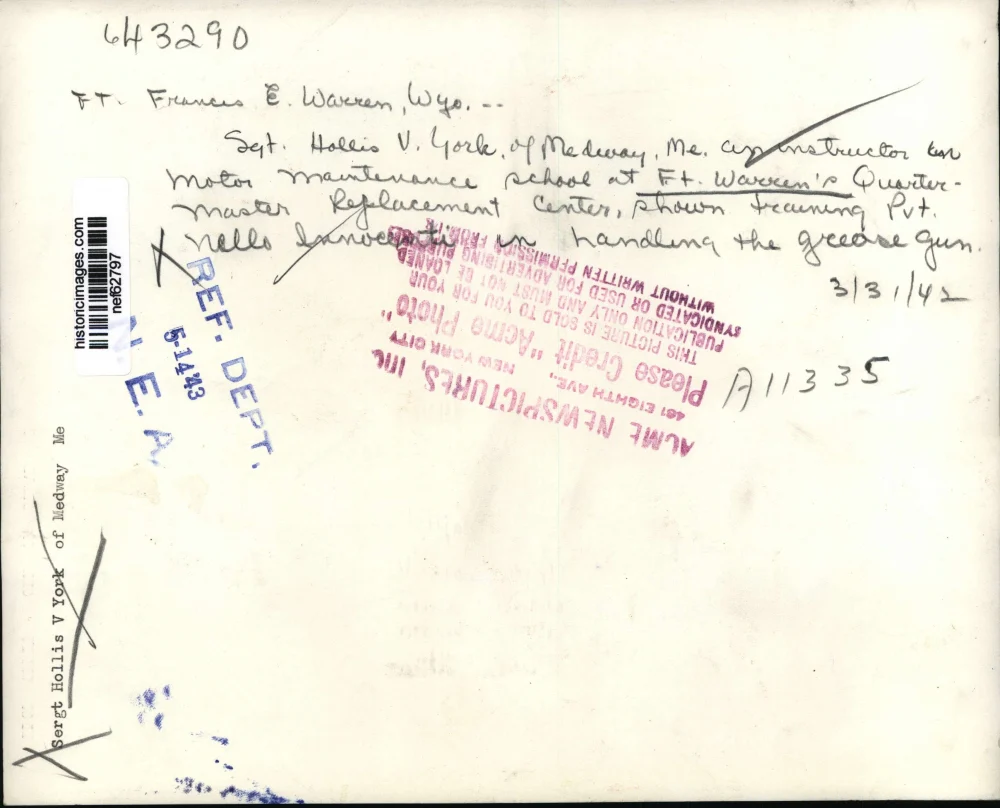 643290
Ft. Francis E. Warren, Wyo. --
Sgt. Hollis V. York, of Medway, Me. an instructor in
motor maintenance school at Ft. Warren's Quarter-
master Replacement Center, shown training Pvt.
Nello Innocenti in handling the grease gun.
3/31/42
A11335
historicimages.com
nef62797
REF. DEPT.
5-14'43
N. E. A.
ACME NEWSPICTURES, INC
461 EIGHTH AVE., NEW YORK CITY
Please Credit "Acme Photo"
THIS PICTURE IS SOLD TO YOU FOR YOUR
PUBLICATION ONLY AND MUST NOT BE LOANED
SYNDICATED OR USED FOR ADVERTISING
WITHOUT WRITTEN PERMISSION FROM
Sergt Hollis V York of Medway Me